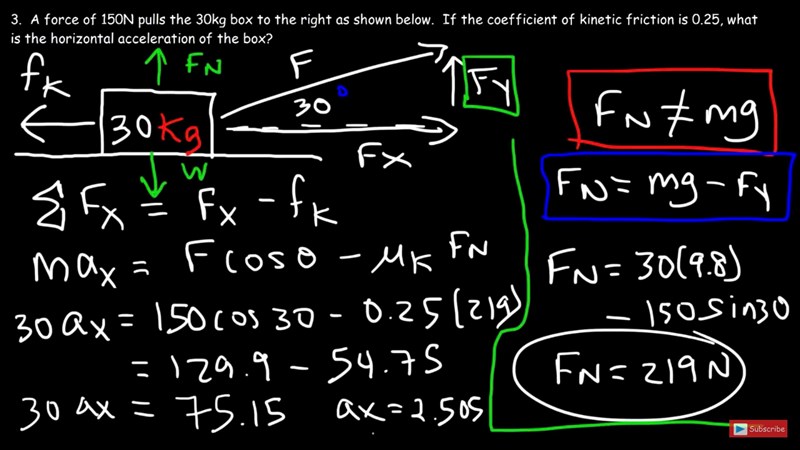 3. A force of 150N pulls the 30kg box to the right as shown below. If the coefficient of kinetic friction is 0.25, what
is the horizontal acceleration of the box?
fK
FN
F
FY
30°
30Kg
FX
W
FN ≠ mg
FN = mg - FY
∑FX = FX - fK
max = Fcosθ - μK FN
30ax = 150cos30 - 0.25(219)
= 129.9 - 54.75
30 ax = 75.15 ax = 2.505
FN = 30(9.8)
- 150sin30
FN = 219N
Subscribe